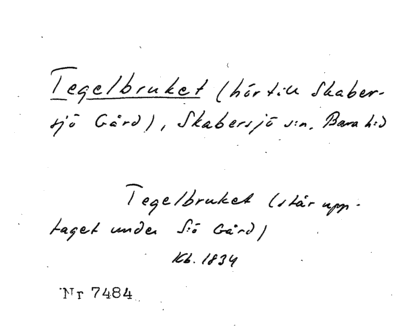 Tegelbruket (hör till Skaber-
sjö Gård), Skabersjö sn, Bara hd
Tegelbruket (står upp-
taget under Sjö Gård)
Kb. 1834
Nr 7484